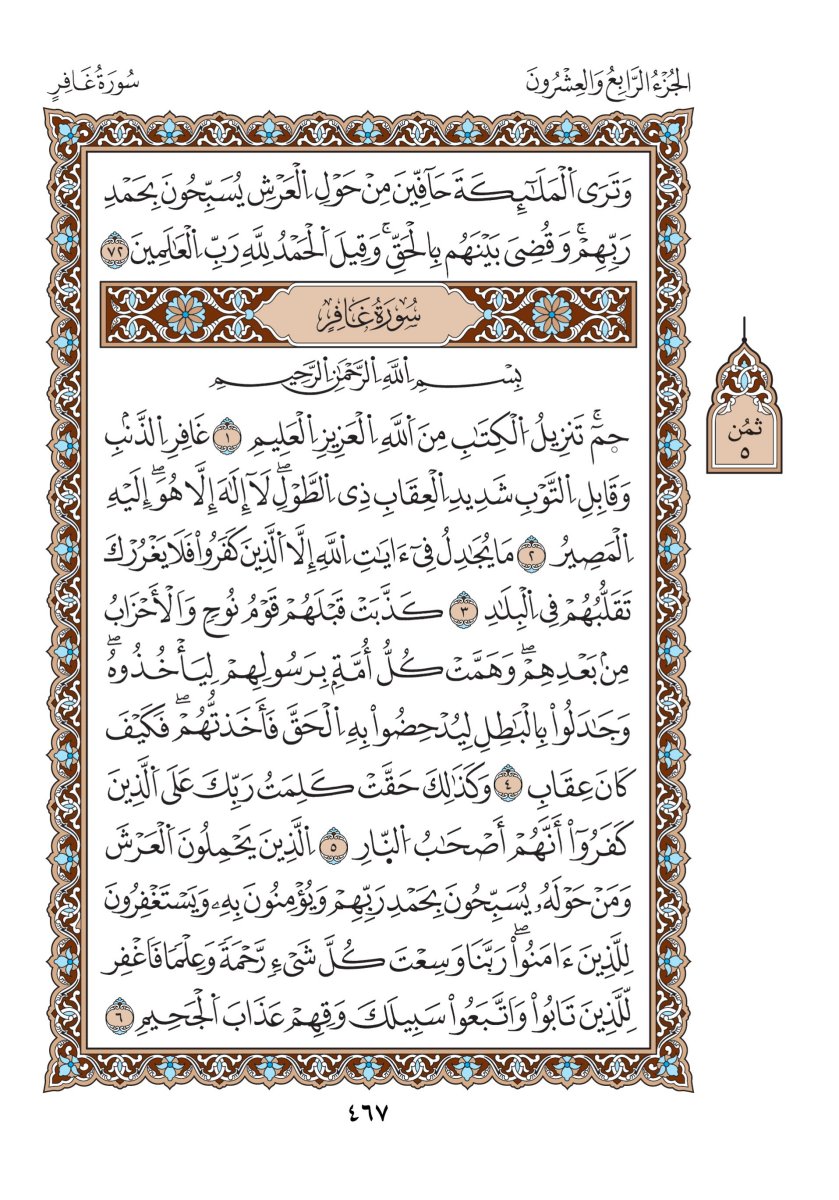 الجُزْءُ الرَّابِعُ وَالعِشْرُونَ
سُورَةُ غَافِرٍ
وَتَرَى اَلْمَلَٰٓئِكَةَ حَآفِّينَ مِنْ حَوْلِ اِلْعَرْشِ يُسَبِّحُونَ بِحَمْدِ
رَبِّهِمْۚ وَقُضِىَ بَيْنَهُم بِالْحَقِّۚ وَقِيلَ اَلْحَمْدُ لِلهِ رَبِّ اِلْعَٰلَمِينَ ٧٢
سُورَةُ غَافِرٍ
بِسْمِ اِللَّهِ اِلرَّحْمَٰنِ اِلرَّحِيمِ
حمٓۚ تَنزِيلُ اُلْكِتَٰبِ مِنَ اَللَّهِ اِلْعَزِيزِ اِلْعَلِيمِ ١ غَافِرِ اِلذَّنۢبِ
وَقَابِلِ اِلتَّوْبِ شَدِيدِ اِلْعِقَابِ ذِى اِلطَّوْلِۖ لَآ إِلَٰهَ إِلَّا هُوَۖ إِلَيْهِ
اِلْمَصِيرُ ٢ مَا يُجَٰدِلُ فِىٓ ءَايَٰتِ اِللَّهِ إِلَّا اَلَّذِينَ كَفَرُواْ فَلَا يَغْرُرْكَ
تَقَلُّبُهُمْ فِى اِلْبِلَٰدِ ٣ كَذَّبَتْ قَبْلَهُمْ قَوْمُ نُوحٍ وَالْأَحْزَابُ
مِنۢ بَعْدِهِمْۖ وَهَمَّتْ كُلُّ أُمَّةِۭ بِرَسُولِهِمْ لِيَأْخُذُوهُۖ
وَجَٰدَلُواْ بِالْبَٰطِلِ لِيُدْحِضُواْ بِهِ اِلْحَقَّ فَأَخَذتُّهُمْۖ فَكَيْفَ
كَانَ عِقَابِ ٤ وَكَذَٰلِكَ حَقَّتْ كَلِمَتُ رَبِّكَ عَلَى اَلَّذِينَ
كَفَرُوٓاْ أَنَّهُمْ أَصْحَٰبُ اُلنّ۪ارِ ٥ اِلَّذِينَ يَحْمِلُونَ اَلْعَرْشَ
وَمَنْ حَوْلَهُۥ يُسَبِّحُونَ بِحَمْدِ رَبِّهِمْ وَيُؤْمِنُونَ بِهِۦ وَيَسْتَغْفِرُونَ
لِلَّذِينَ ءَامَنُواْۖ رَبَّنَا وَسِعْتَ كُلَّ شَىْءٍ رَّحْمَةً وَعِلْمًا فَاغْفِر
لِّلَّذِينَ تَابُواْ وَاتَّبَعُواْ سَبِيلَكَ وَقِهِمْ عَذَابَ اَلْجَحِيمِ ٦
ثمُن
٥
٤٦٧